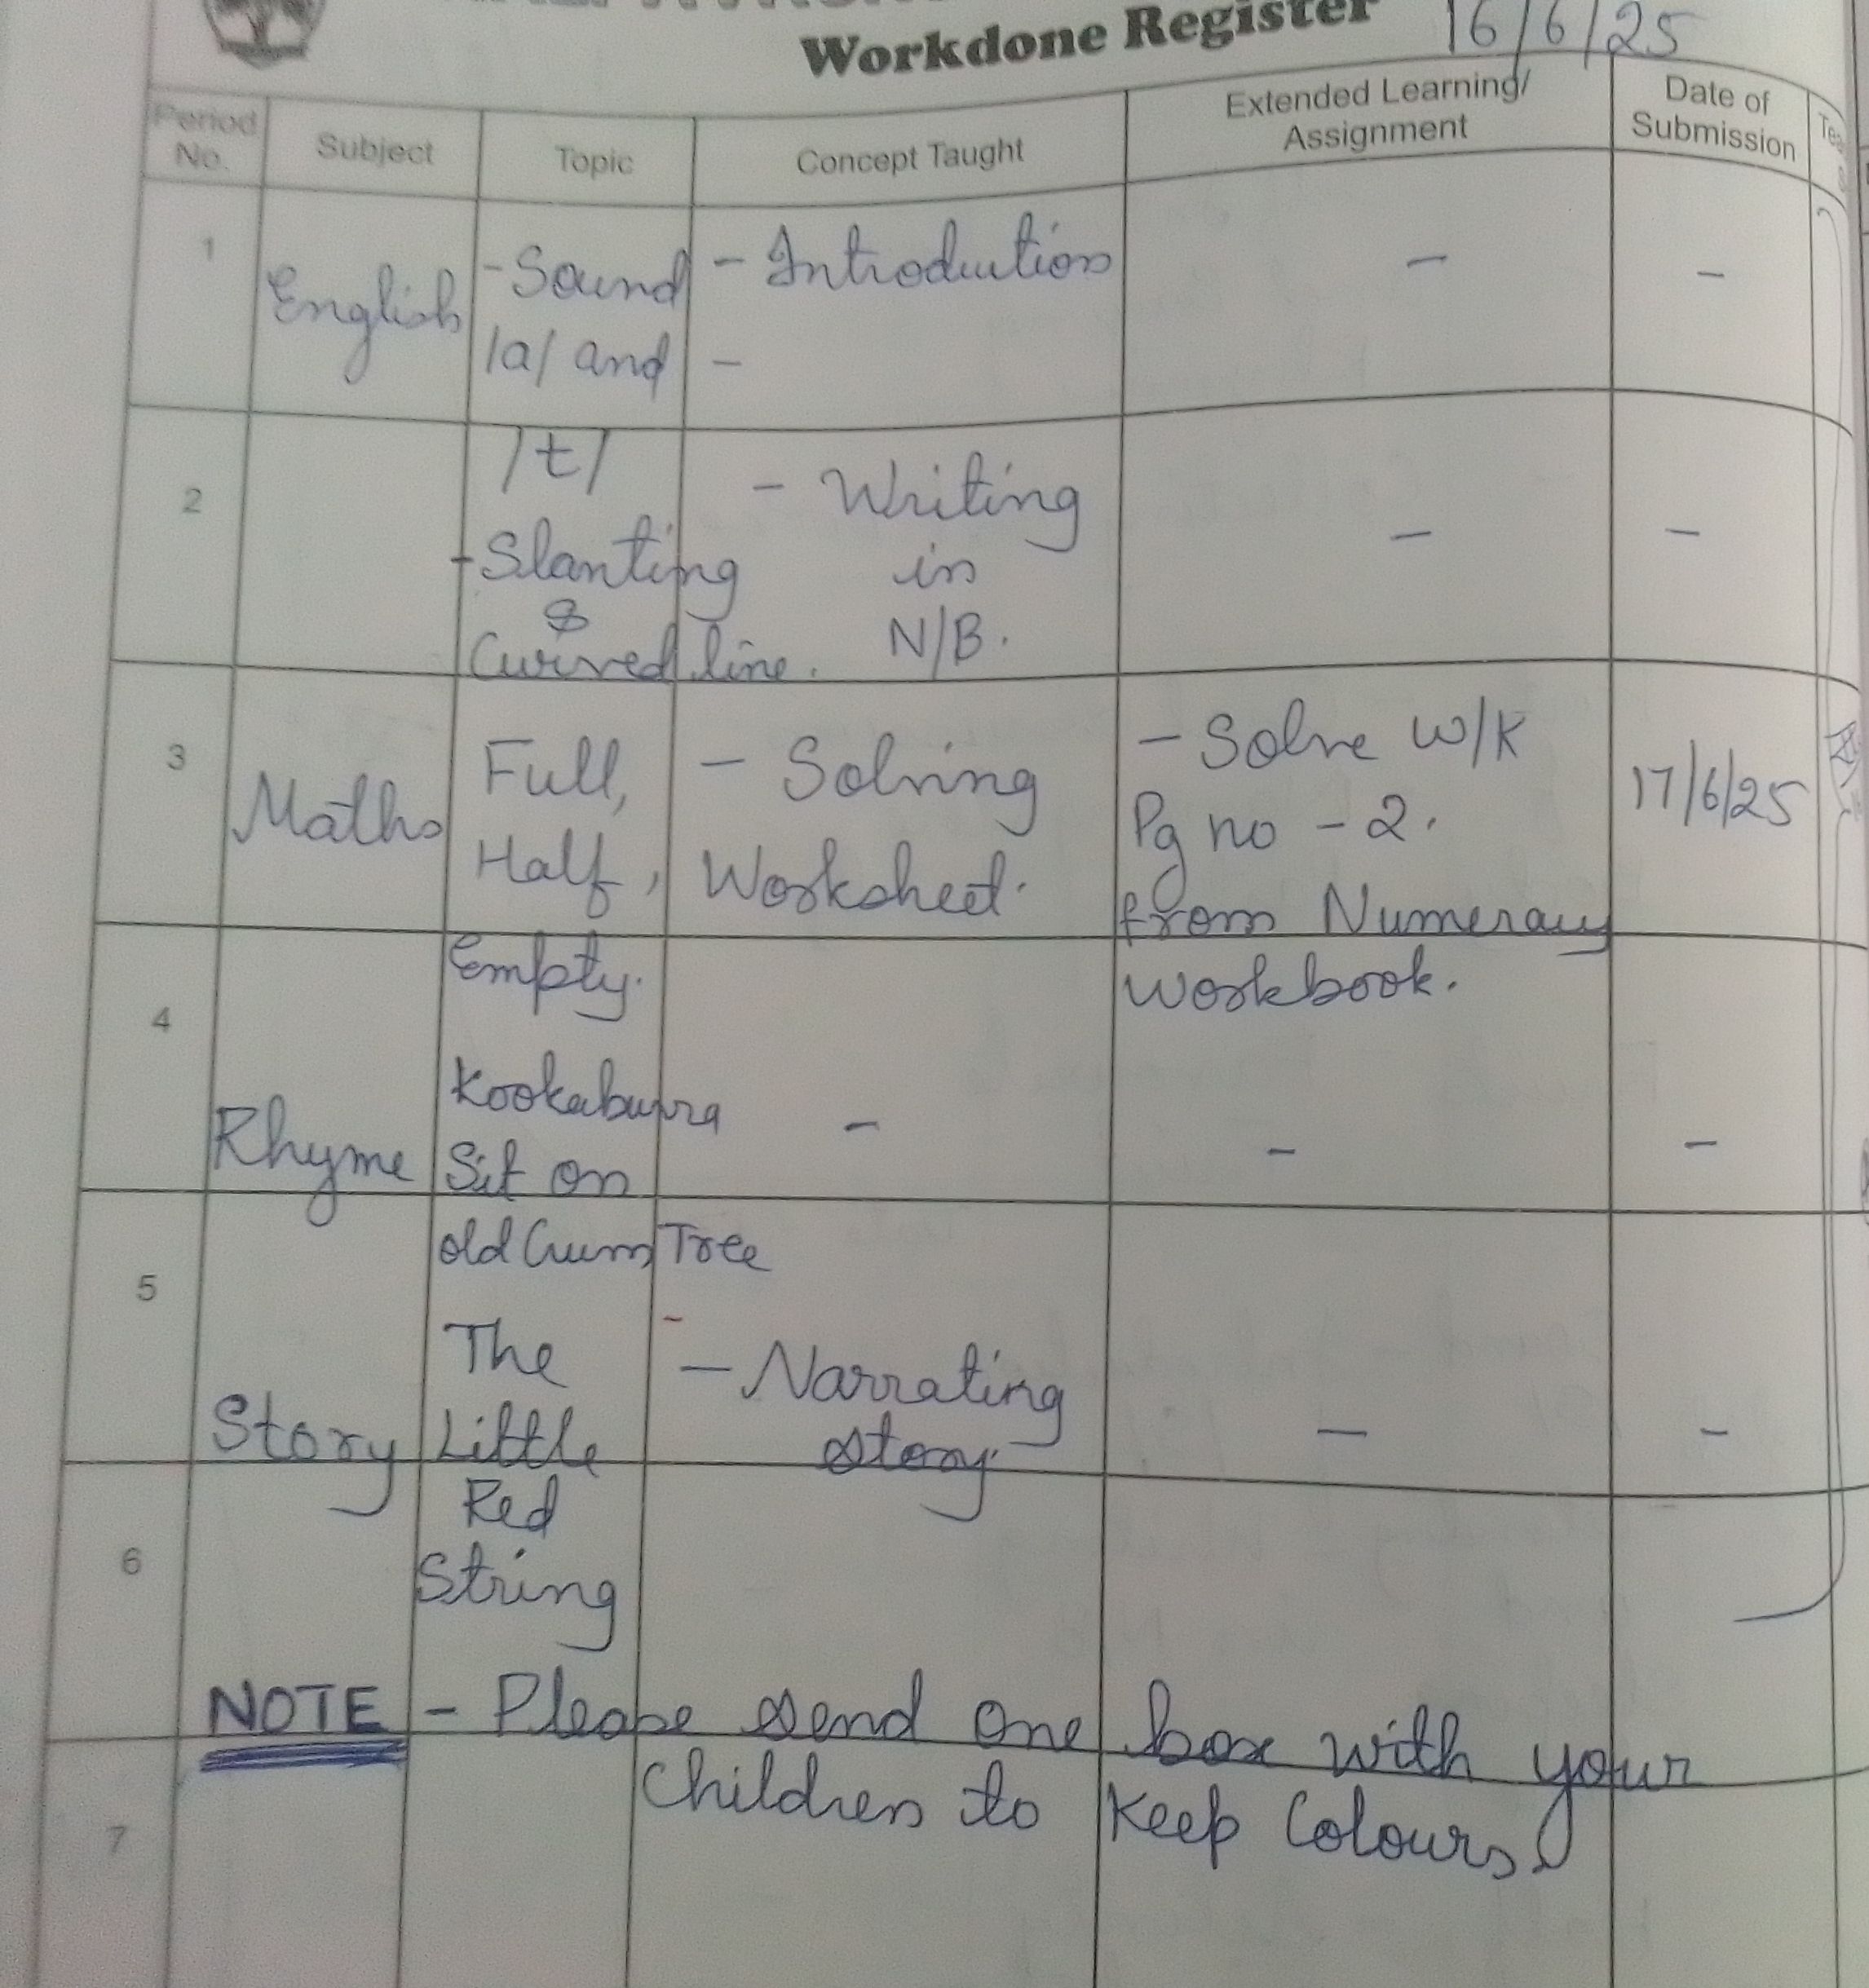 Workdone Register 16/6/25
Period No.
Subject
Topic
Concept Taught
Extended Learning/
Assignment
Date of
Submission
1
English
- Sound
/a/ and
- Introduction
-
-
-
2
/t/
- Slanting
&
Curved line.
- Writing
in
N/B.
-
-
3
Maths
Full,
Half,
Empty.
- Solving
Worksheet.
- Solve W/K
Pg no - 2.
from Numeracy
Workbook.
17/6/25
4
Rhyme
Kookaburra
Sit on
old Gum Tree
-
-
-
5
Story
The
Little
Red
String
- Narrating
story.
-
-
6
NOTE - Please send one box with your
Children to Keep Colours.
7